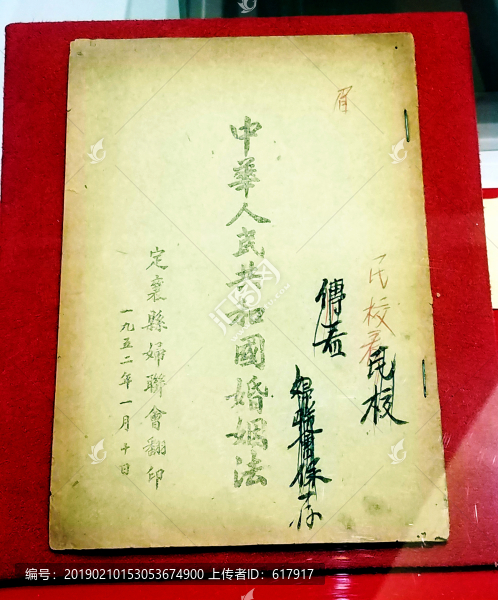 民校看
民校
傳看
保存
中華人民共和國婚姻法
定襄縣婦聯會翻印
一九五二年一月十日
编号：20190210153053674900 上传者ID：617917